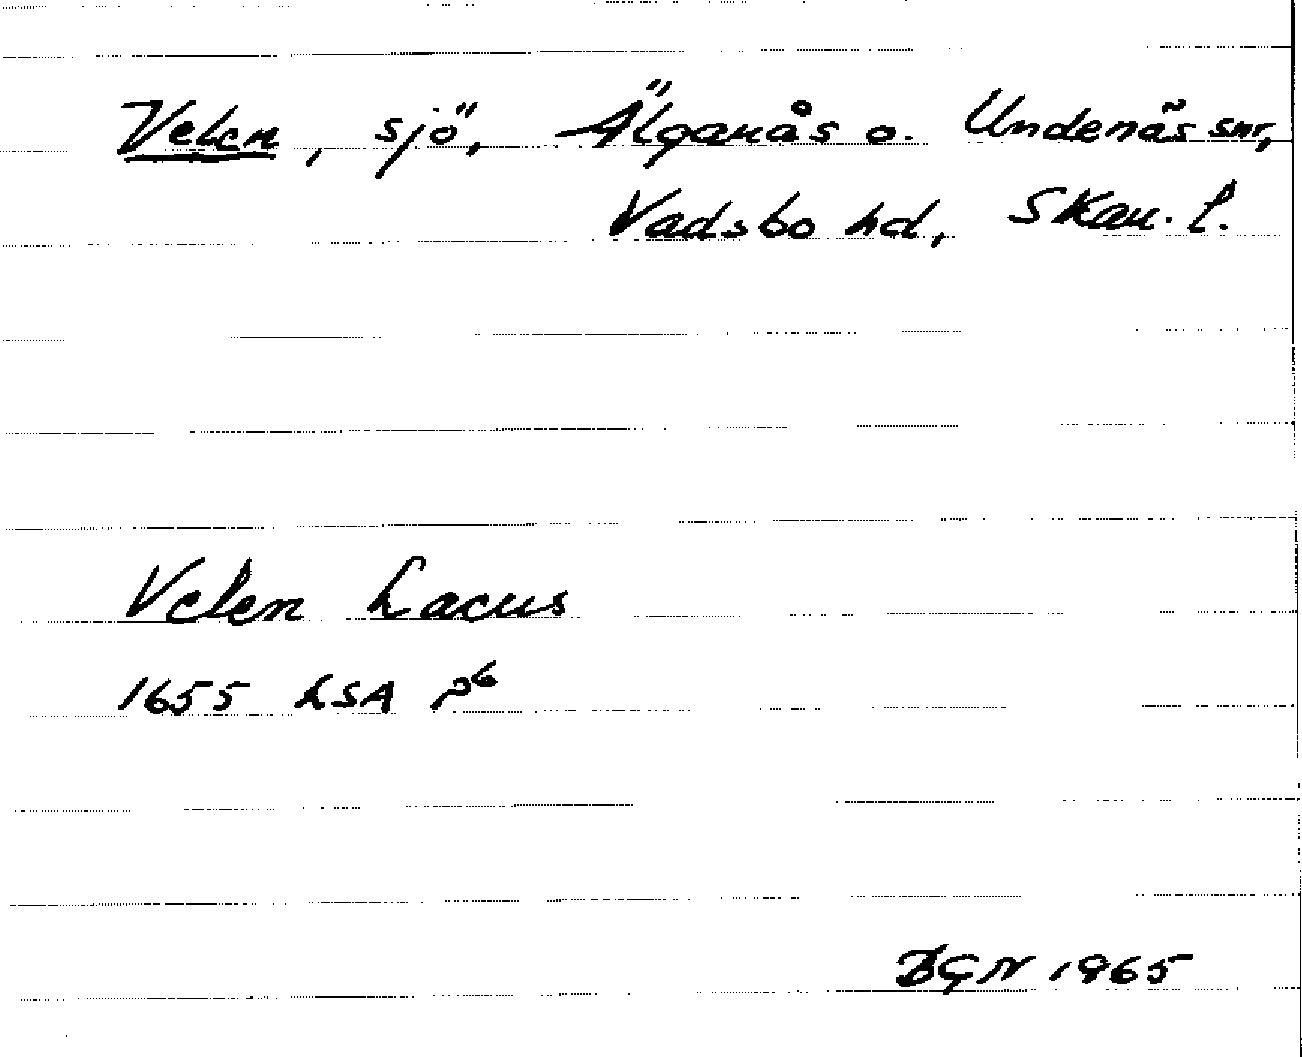 Velen, sjö, Älgarås o. Undenäs snr,
Vadsbo hd, Skar. l.
Velen Lacus
1655 LSA P6
BGN 1965